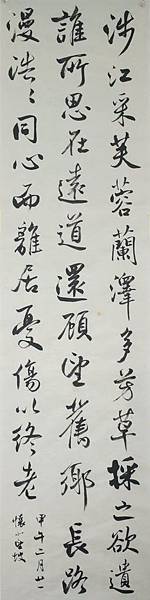 涉江采芙蓉蘭澤多芳草採之欲遺
誰所思在遠道還顧望舊鄉長路
漫浩〻同心而離居憂傷以終老
甲午二月廿